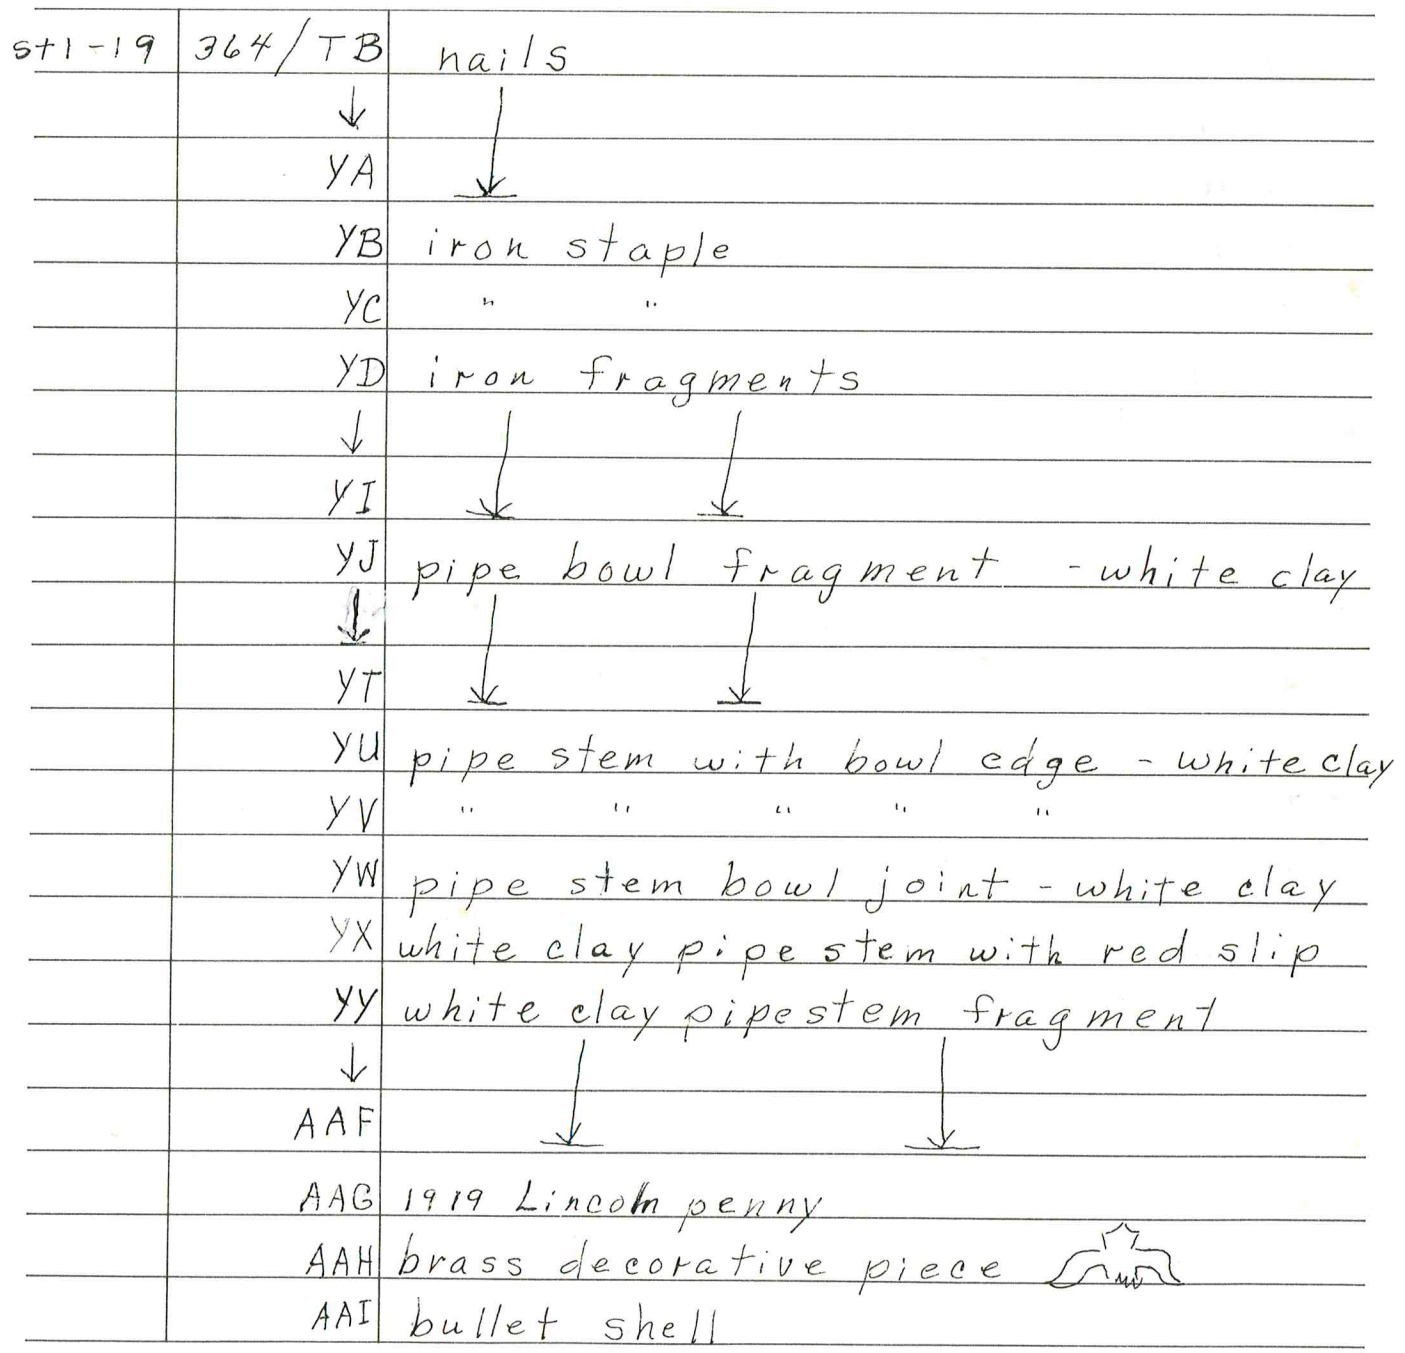 st1-19 364/TB nails
↓ ↓
YA
YB iron staple
YC " "
YD iron fragments
↓ ↓ ↓
YI
YJ pipe bowl fragment - white clay
↓ ↓ ↓
YT
YU pipe stem with bowl edge - white clay
YV " " " " "
YW pipe stem bowl joint - white clay
YX white clay pipe stem with red slip
YY white clay pipestem fragment
↓ ↓ ↓
AAF
AAG 1919 Lincoln penny
AAH brass decorative piece
AAI bullet shell